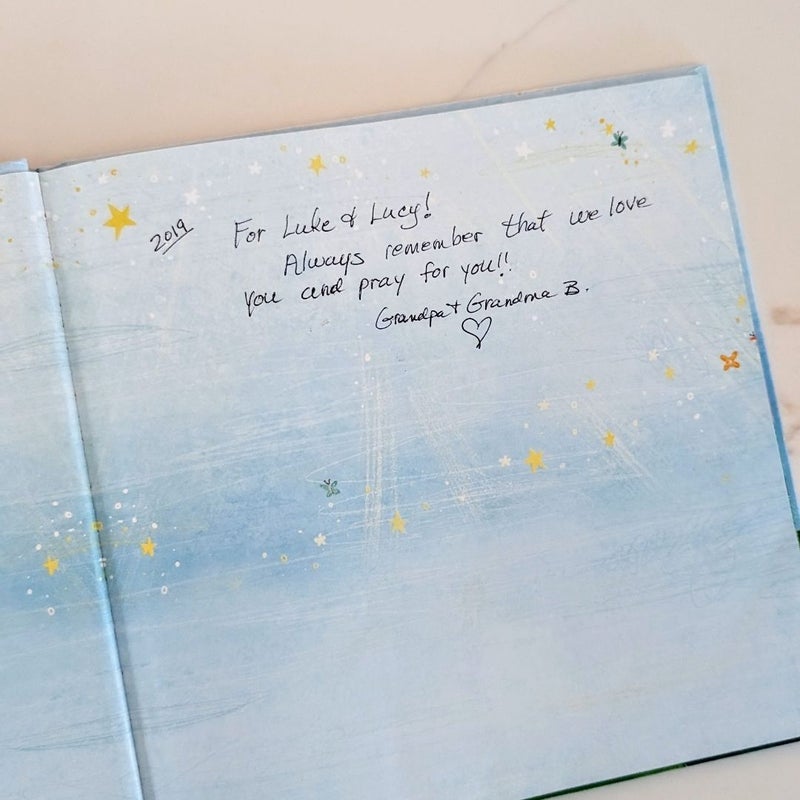 2019
For Luke & Lucy!
Always remember that we love
you and pray for you!!
Grandpa + Grandma B.